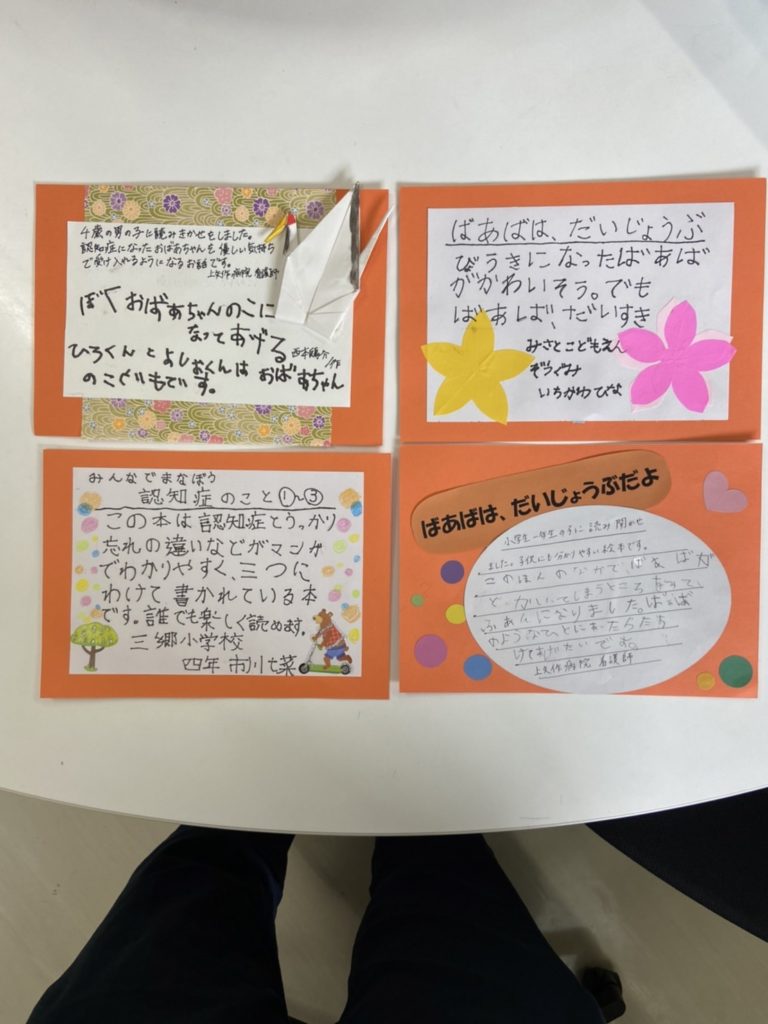 4歳の男の子に読みきかせをしました。
認知症になったおばあちゃんを優しい気持ち
で受け入れるようになるお話です。
上矢作病院 看護師
ぼくおばあちゃんのこに
なってあげる
ひろくんとよしおくんはおばあちゃん
のこどもです。
ばあばは、だいじょうぶ
びょうきになったばあば
がかわいそう。でも
ばあば、だいすき
みさとこどもえん
ぞうぐみ
いちかわひな
みんなでまなぼう
認知症のこと①〜③
この本は認知症とうっかり
忘れの違いなどがマンガ
でわかりやすく、三つに
わけて書かれている本
です。誰でも楽しく読めます。
三郷小学校
四年 市川七菜
ばあばは、だいじょうぶだよ
小学生一年生の子に読み聞かせ
ました。子供にも分かりやすい絵本です。
このほんのなかで、ばあばが
どっかいってしまうところ
ふあんになりました。ばあば
のようなひとにあったらたす
けてあげたいです。
上矢作病院 看護師